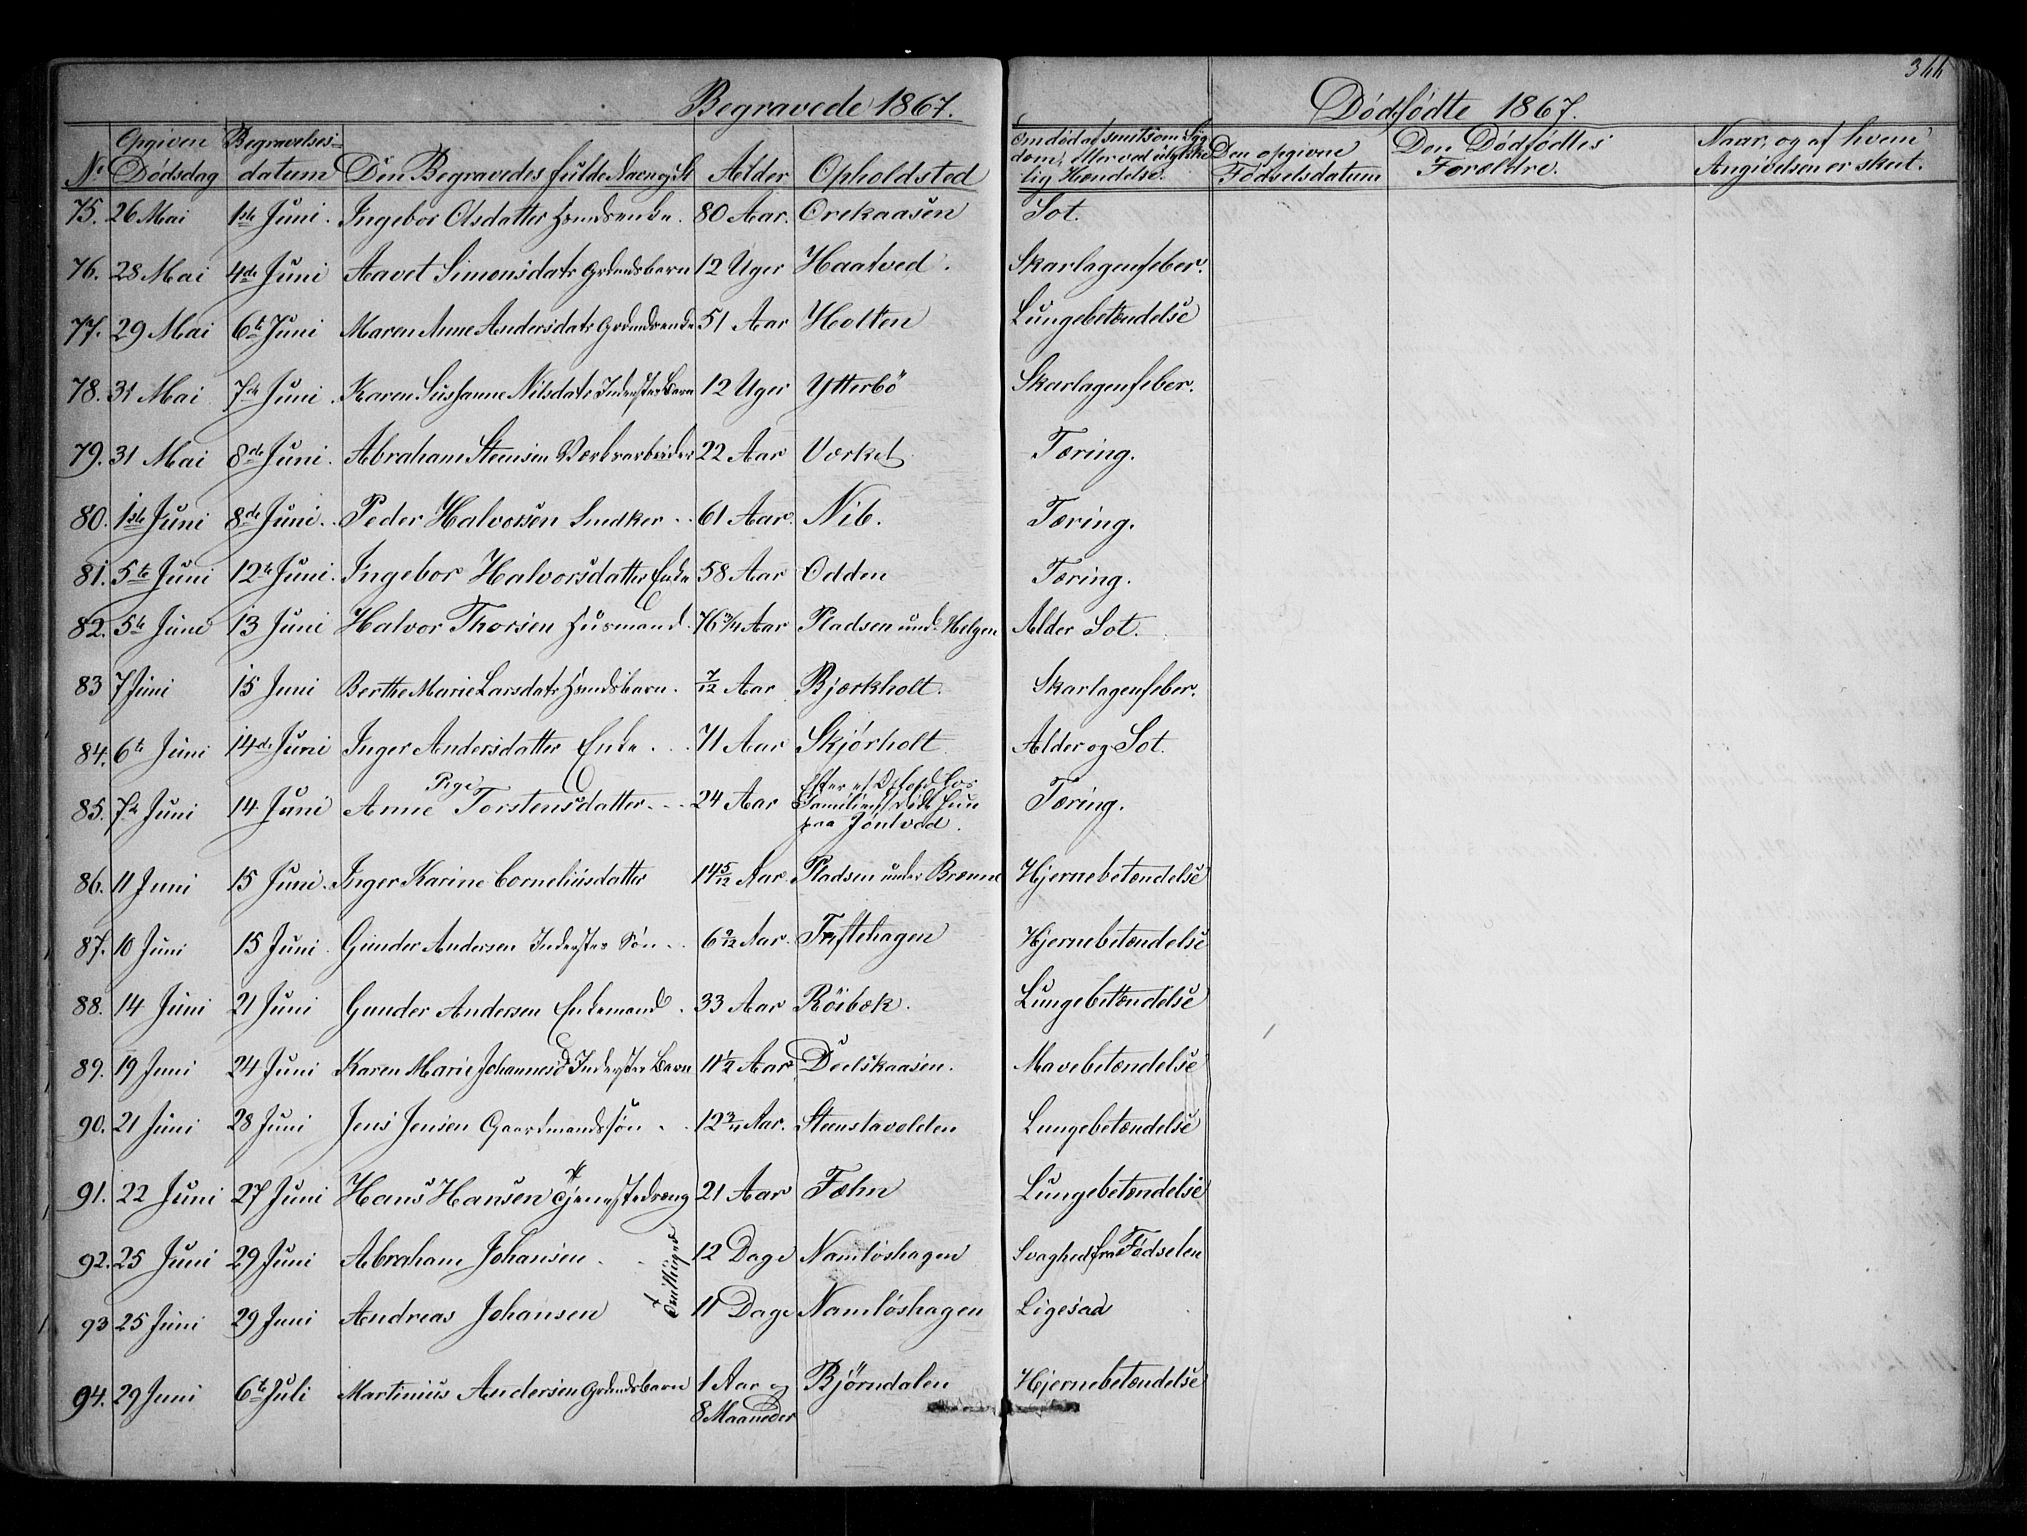 Begravede 1867.
Dødfødte 1867.
No Opgiven Dødsdag Begravelses-datum Den Begravedes fulde Navn og St Alder Opholdsted Om død af smitsom Syg-dom, eller ved ulykke-lig Hændelse. Den opgivne Fødselsdatum Den Dødfødtes Forældre. Naar, og af hvem Angivelsen er skeet.
75. 26 Mai 1ste Juni. Ingebor Olsdatter 80 Aar. Orekaasen Sot.
76. 28 Mai 4de Juni Aavet Simonsdatr Grdmdsbarn 12 Uger Haatved. Skarlagensfeber.
77. 29 Mai 6te Juni Maren Anne Andersdatr 51 Aar Holten Lungebetændelse
78. 31 Mai 7de Juni. Karen Susanne Nilsdatr Inderster Barn 12 Uger Ytterbö Skarlagensfeber.
79. 31 Mai 8de Juni. Abraham Steensen Værksarbeider 22 Aar Værket Tæring.
80. 1ste Juni 8de Juni. Peder Halvorsen Snedker 61 Aar. Nib. Tæring.
81. 5te Juni 12te Juni. Ingebor Halvorsdatter Enke 58 Aar Odden Tæring.
82. 5te Juni 13 Juni Halvor Thorsen Husmand. 76 3/4 Aar Pladsen undr Helgen Alder Sot.
83 7 Juni 15 Juni Berthe Marie Larsdatr Hsmdsbarn. 7/12 Aar Bjørkholt. Skarlagensfeber.
84. 6te Juni 14de Juni Inger Andersdatter Enke 71 Aar Skjørholt Alder og Sot.
85. 7de Juni 14 Juni Pige Anne Torstensdatter 24 Aar Efter et Ophold hos Familien døde hun paa Jöntvad. Tæring.
86. 11 Juni 15 Juni. Inger Karine Corneliusdatter 14 5/12 Aar Pladsen under Brenne Hjernebetændelse
87. 10 Juni 15 Juni. Gunder Andersen Inderster Søn 6 9/12 Aar. Tuftehagen Hjernebetændelse
88. 14 Juni 21 Juni Gunder Andersen Enkemand. 33 Aar Röibæk. Lungebettændelse
89. 19 Juni 24 Juni Karen Marie Johannesd Inderster Barn 11 1/2 Aar Dælskaasen. Mavebetændelse
90. 21 Juni 28 Juni Jens Jensen Gaardmandssøn 12 3/4 Aar. Steenstavolden Lungebetændelse
91. 22 Juni 27 Juni Hans Hansen Tjenestedreng 21 Aar Fæhn Lungebetændelse
92. 25 Juni 29 Juni Abraham Johansen 12 Dage Namløshagen Svaghed fra Fødselen
Tvillinger
93 25 Juni 29 Juni Andreas Johansen 11 Dage Namløshagen Ligesaa
94. 29 Juni 6te Juli Martinius Andersen Grdmdsbarn 1 Aar og 8 Maaneder Bjørndalen Hjernebetændelse